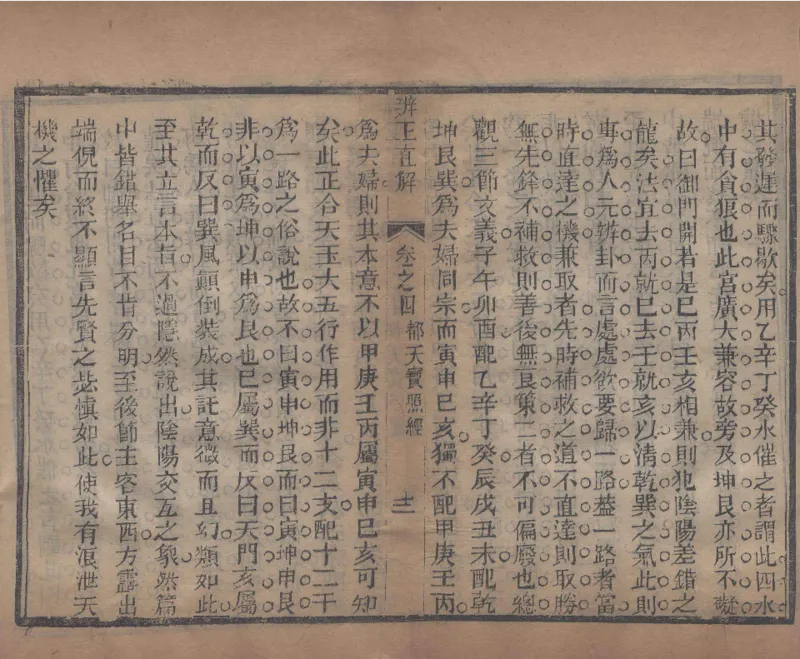 其發遲而驟歇矣用乙辛丁癸水催之者謂此四水
中有貪狼也此宮廣大兼容故旁及坤艮亦所不礙
故曰御門開若是巳丙壬亥相兼則犯陰陽差錯之
龍矣法宜去丙就巳去壬就亥以清乾巽之氣此則
專為人元辨卦而言處處欲要歸一路葢一路者當
時直達之機兼取者先時補救之道不直達則取勝
無先鋒不補救則善後無良策二者不可偏廢也總
觀三節文義子午卯酉配乙辛丁癸辰戌丑未配乾
坤艮巽為夫婦同宗而寅申巳亥獨不配甲庚壬丙
辨正直解
卷之四
都天寶照經
十二
為夫婦則其本意不以甲庚壬丙屬寅申巳亥可知
矣此正合天玉大五行作用而非十二支配十二干
為一路之俗說也故不曰寅申坤艮而曰寅坤申艮
非以寅為坤以申為艮也巳屬巽而反曰天門亥屬
乾而反曰巽風顛倒裝成其託意微而且幻類如此
至其立言本旨不過隱然說出陰陽交互之象然篇
中皆錯舉名目不肯分明至後節主客東西方露出
端倪而終不顯言先賢之慎如此使我有浪泄天
機之懼矣